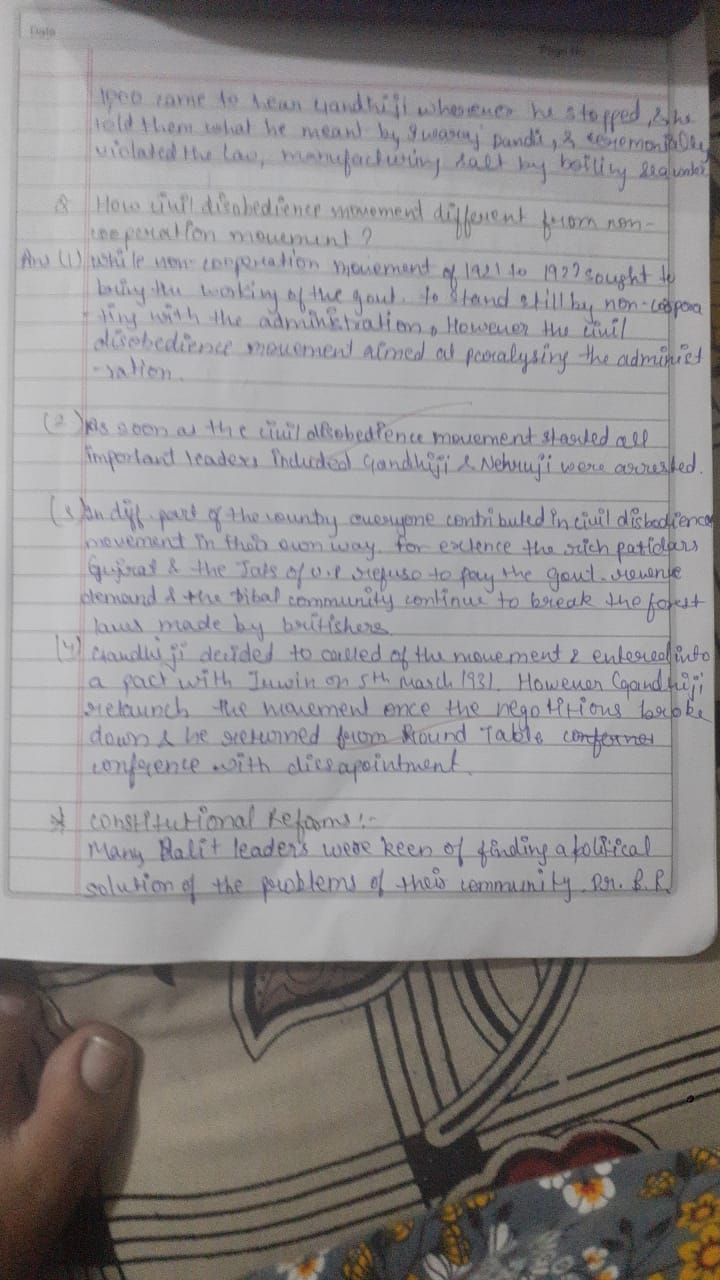 Date
Page No.
1000 came to hear Gandhiji wherever he stopped, & he
told them what he meant by swaraj
violated the law, manufacturing salt by boiling
Q How civil disobedience movement different from non-
cooperation movement?
Ans (1) While non-cooperation movement of 1921 to 1922 sought to
bring the working of the govt. to stand still by non-coopera
-ting with the administration, However the civil
disobedience movement aimed at paralysing the administ
-ration.
(2) As soon as the civil disobedience movement started all
important leaders included Gandhiji & Nehruji were arrested.
(3) In diff. part of the country everyone contributed in civil disbodience
movement in their own way. for exlence the rich patidars
Gujrat & the Jats of U.P refuse to pay the govt. revenue
demand & the tibal community continue to break the forest
laws made by britishers.
(4) Gandhi ji decided to called of the movement & entered into
a pact with Irwin on 5th March 1931. However Gandhiji
relaunch the movement once the negotitions broke
down & he returned from Round Table
conference with dissapointment.
* Constitutional Reforms:-
Many Dalit leaders were keen of finding a political
solution of the problems of their community. Dr. B.R.